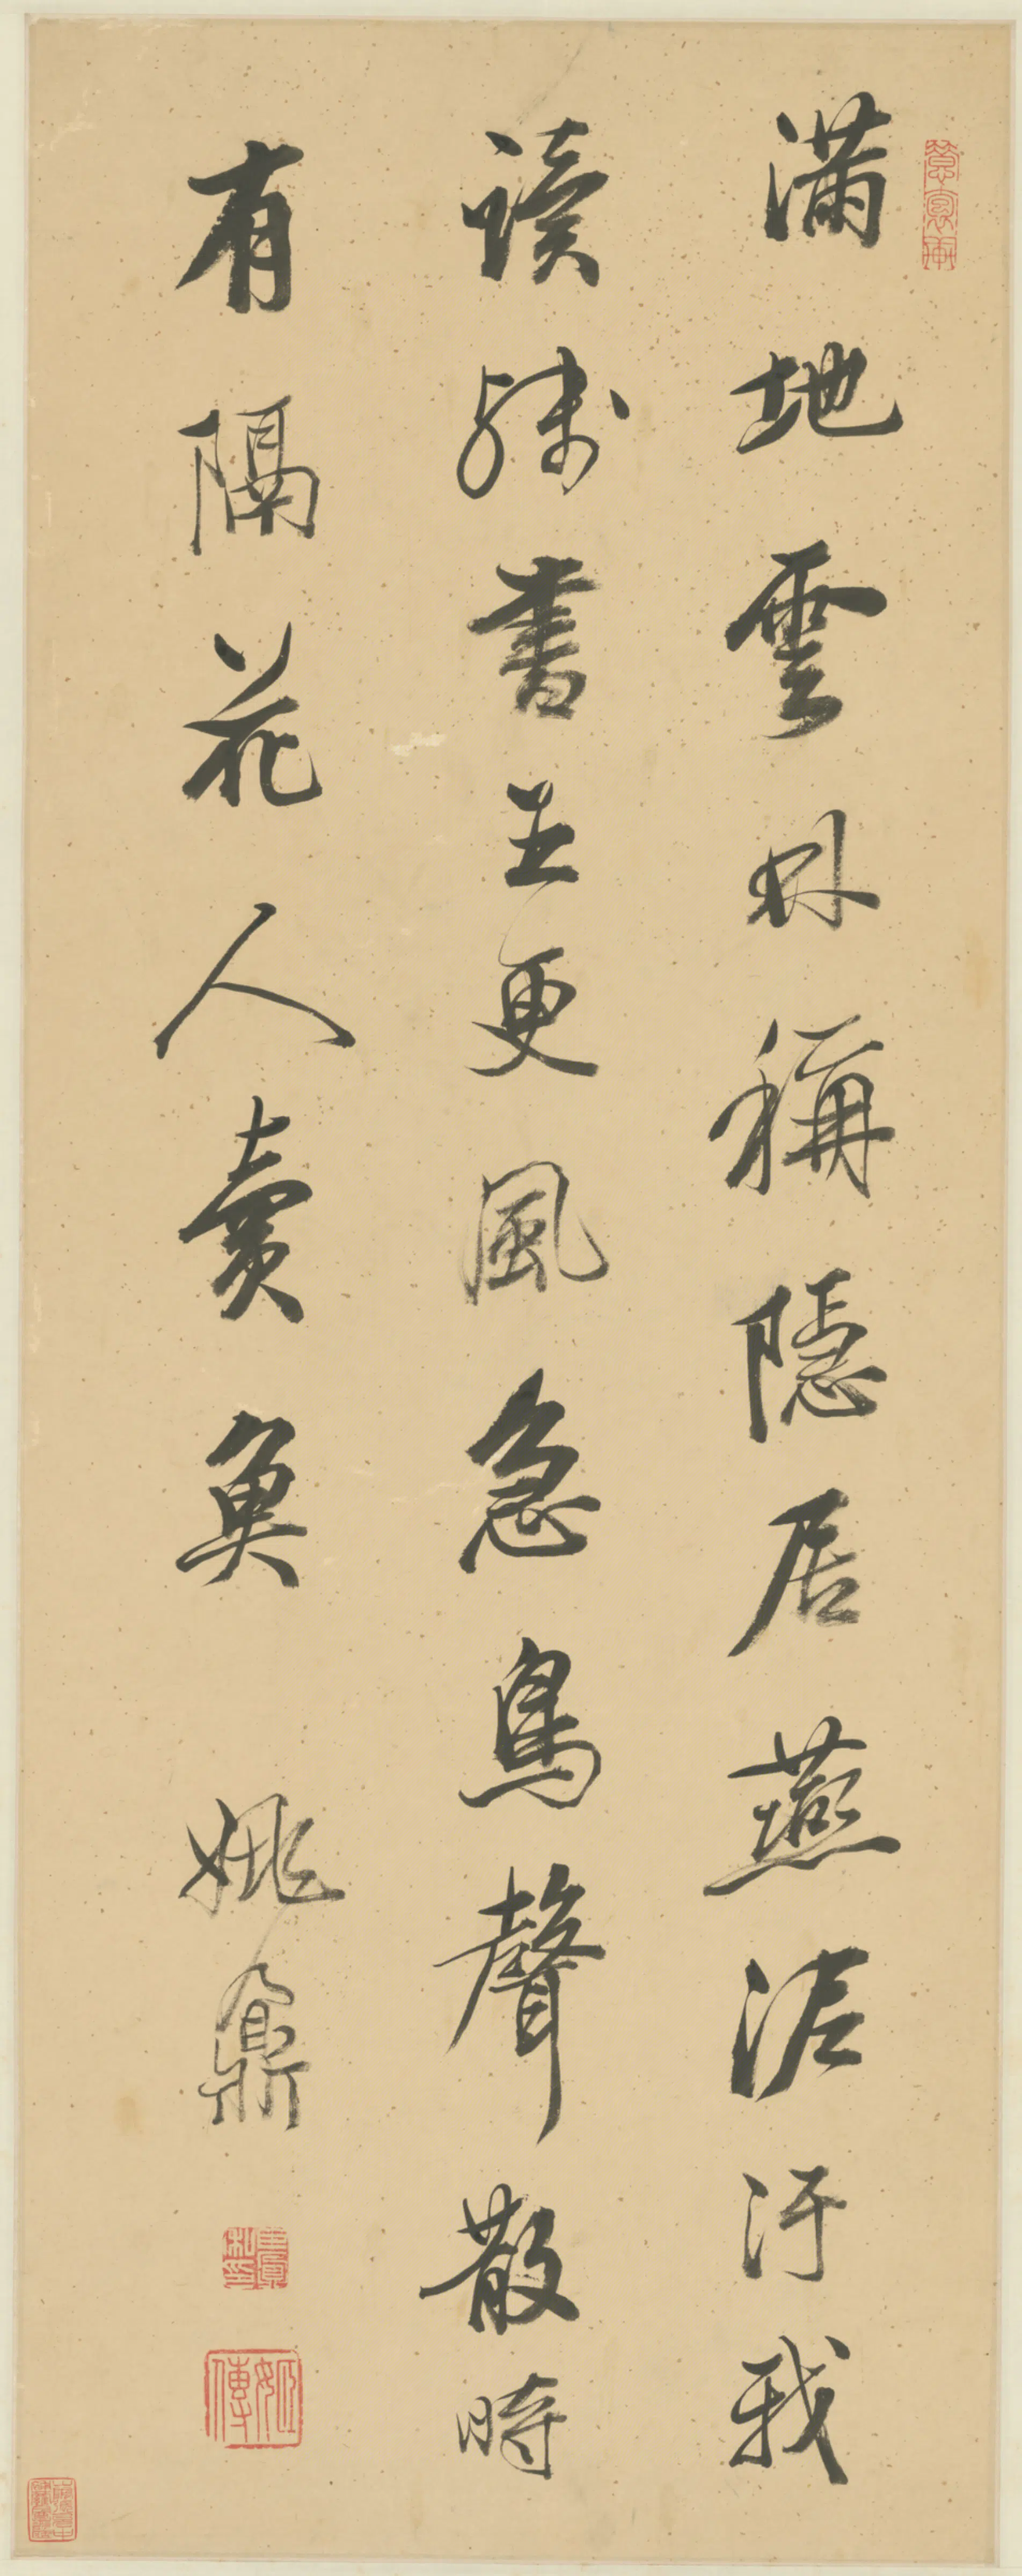 滿地雲林稱隱居燕泥汙我
讀殘書五更風急鳥聲散時
有隔花人賣魚 姚鼐
姬傳